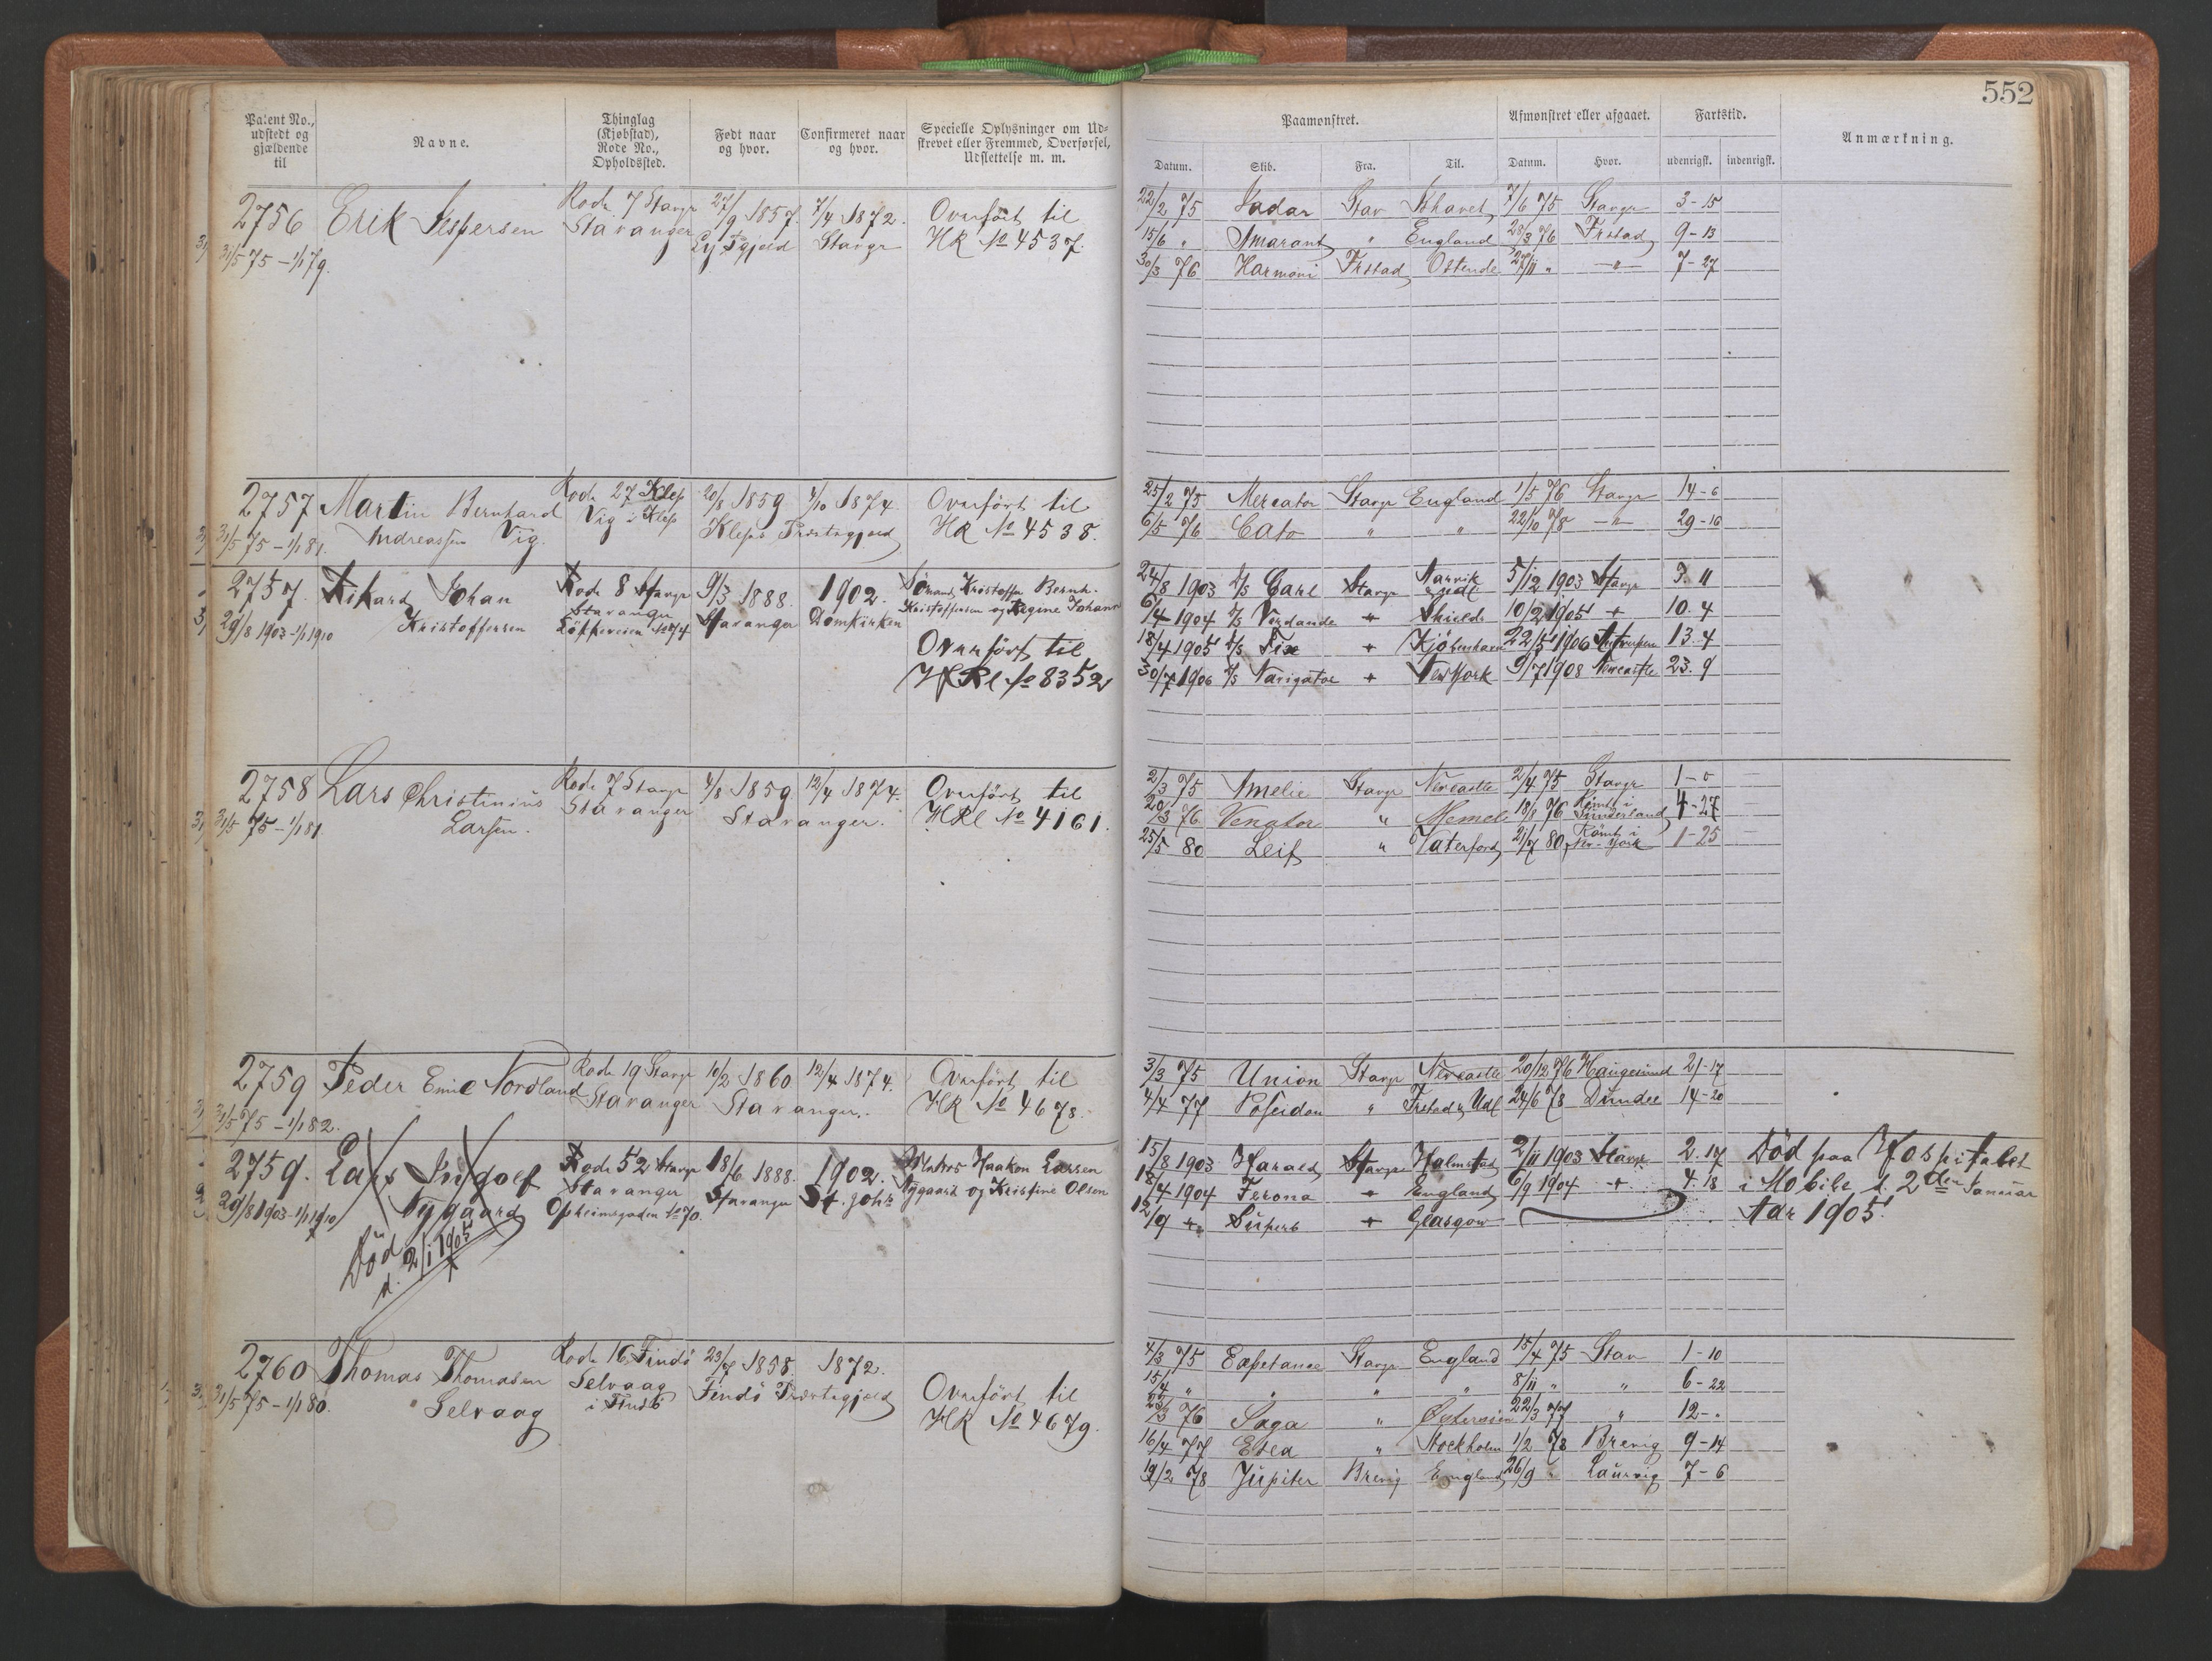 552
Patent No., udstedt og gjældende til
Navne.
Thinglag (Kjøbstad), Rode No., Opholdssted.
Født naar og hvor.
Confirmeret naar og hvor.
Specielle Oplysninger om Udskrevet eller Fremmed, Overførsel, Udslettelse m. m.
Paamønstret.
Afmønstret eller afgaaet.
Fartstid.
Anmærkning.
Datum. Skib. Fra. Til. Datum. Hvor. udenrigsk. indenrigsk.
2756 Erik Jespersen Rode 7 Stavgr 27/9 1857. 7/4 1872. Overført til
31/5 75 – 1/1 79. Stavanger Stavgr HR No 4537.
22/2 75 Jadar Stav 7/6 75 Stavgr 3–15
15/6 " Amarant " England 28/3 76 Frstad 9–13
30/3 76 Harmoni Frstad Ostende 27/11 " –"– 7–27
2757 Martin Bernhard Rode 27 Klep 20/8 1859 4/10 1874. Overført til
31/5 75 – 1/1 81. Andreassen Vig. Vig i Klep Kleps Præstegjæld HR No 4538.
25/2 75 Mercator Stavgr England 1/5 76 Stavgr 14–6
6/5 76 Cato " " 22/10 78 –"– 29–16
2757. Rikard Johan Rode 8 Stavgr 9/3 1888. 1902. Sömand Kristoffer Bernh.
29/8 1903 – 1/1 1910 Kristoffersen Stavanger Stavanger Domkirken Kristoffersen og Regine Johann
Overført til
HRl No 8352
24/8 1903 D/S Carl Stavgr Narvik Udl 5/12 1903 Stavgr 3. 11
6/4 1904 D/S Verdande + Shields 10/2 1905 + 10. 4
18/4 1905 D/S Fix + Kjöbenhavn 22/5 1906 Antwerpen 13. 4
30/7 1906 D/S Navigator + New York 9/7 1908 Newcastle 23. 9
2758 Lars Christinius Rode 7 Stavgr 4/8 1859 12/4 1874. Overført til
31/5 75 – 1/1 81 Larsen. Stavanger Stavanger. HRl No 4161.
2/3 75 Amelie Stavgr Newcastle 2/4 75 Stavgr 1–0
20/3 76 Venator " Memel 18/8 76 Römt i Sunderland 4–27
25/5 80 Leif " Waterford 21/7 80 Römt i New-York 1–25
2759 Peder Emil Nordland Rode 19 Stavgr 10/2 1860 12/4 1874. Overført til
31/5 75 – 1/1 82. Stavanger Stavanger. HR No 4678.
3/3 75 Union Stavgr Newcastle 20/12 76 Haugesund 21–17
4/4 77 Poseidon " Frstad & Udl 24/6 78 Dundee 14–20
2759. Lars Ingolf Rode 52 Stavgr 18/6 1888. 1902. Matros Haakon Larsen
29/8 1903 – 1/1 1910 Nygaard Stavanger Stavanger St. Johs Nygaard og Kristine Olsen
Opheimsgaden No 70.
Död d. 2/1 1905
15/8 1903 Harald Stavgr Halmstad 2/11 1903 Stavgr 2. 17 Död paa Hospitalet
18/4 1904 Ferona + England 6/9 1904 + 4. 18 i Mobile d. 2den Januar
12/9 + Superb + Glasgow Aar 1905.
2760 Thomas Thomasen Rode 16 Findö 23/7 1858. 1872.
31/5 75 – 1/1 80. Selvaag Selvaag i Findö Findö Præstegjæld Overført til
HR No 4679.
4/3 75 Stavgr England 15/4 75 Stav 1–10
15/4 " " " " 8/11 " " 6–22
23/3 76 Saga " Østersöen 22/3 77 " 12– "
16/4 77 " Stockholm 1/2 78 Brevig 9–14
19/2 78 Jupiter Brevig England 26/9 " Laurvig 7–6